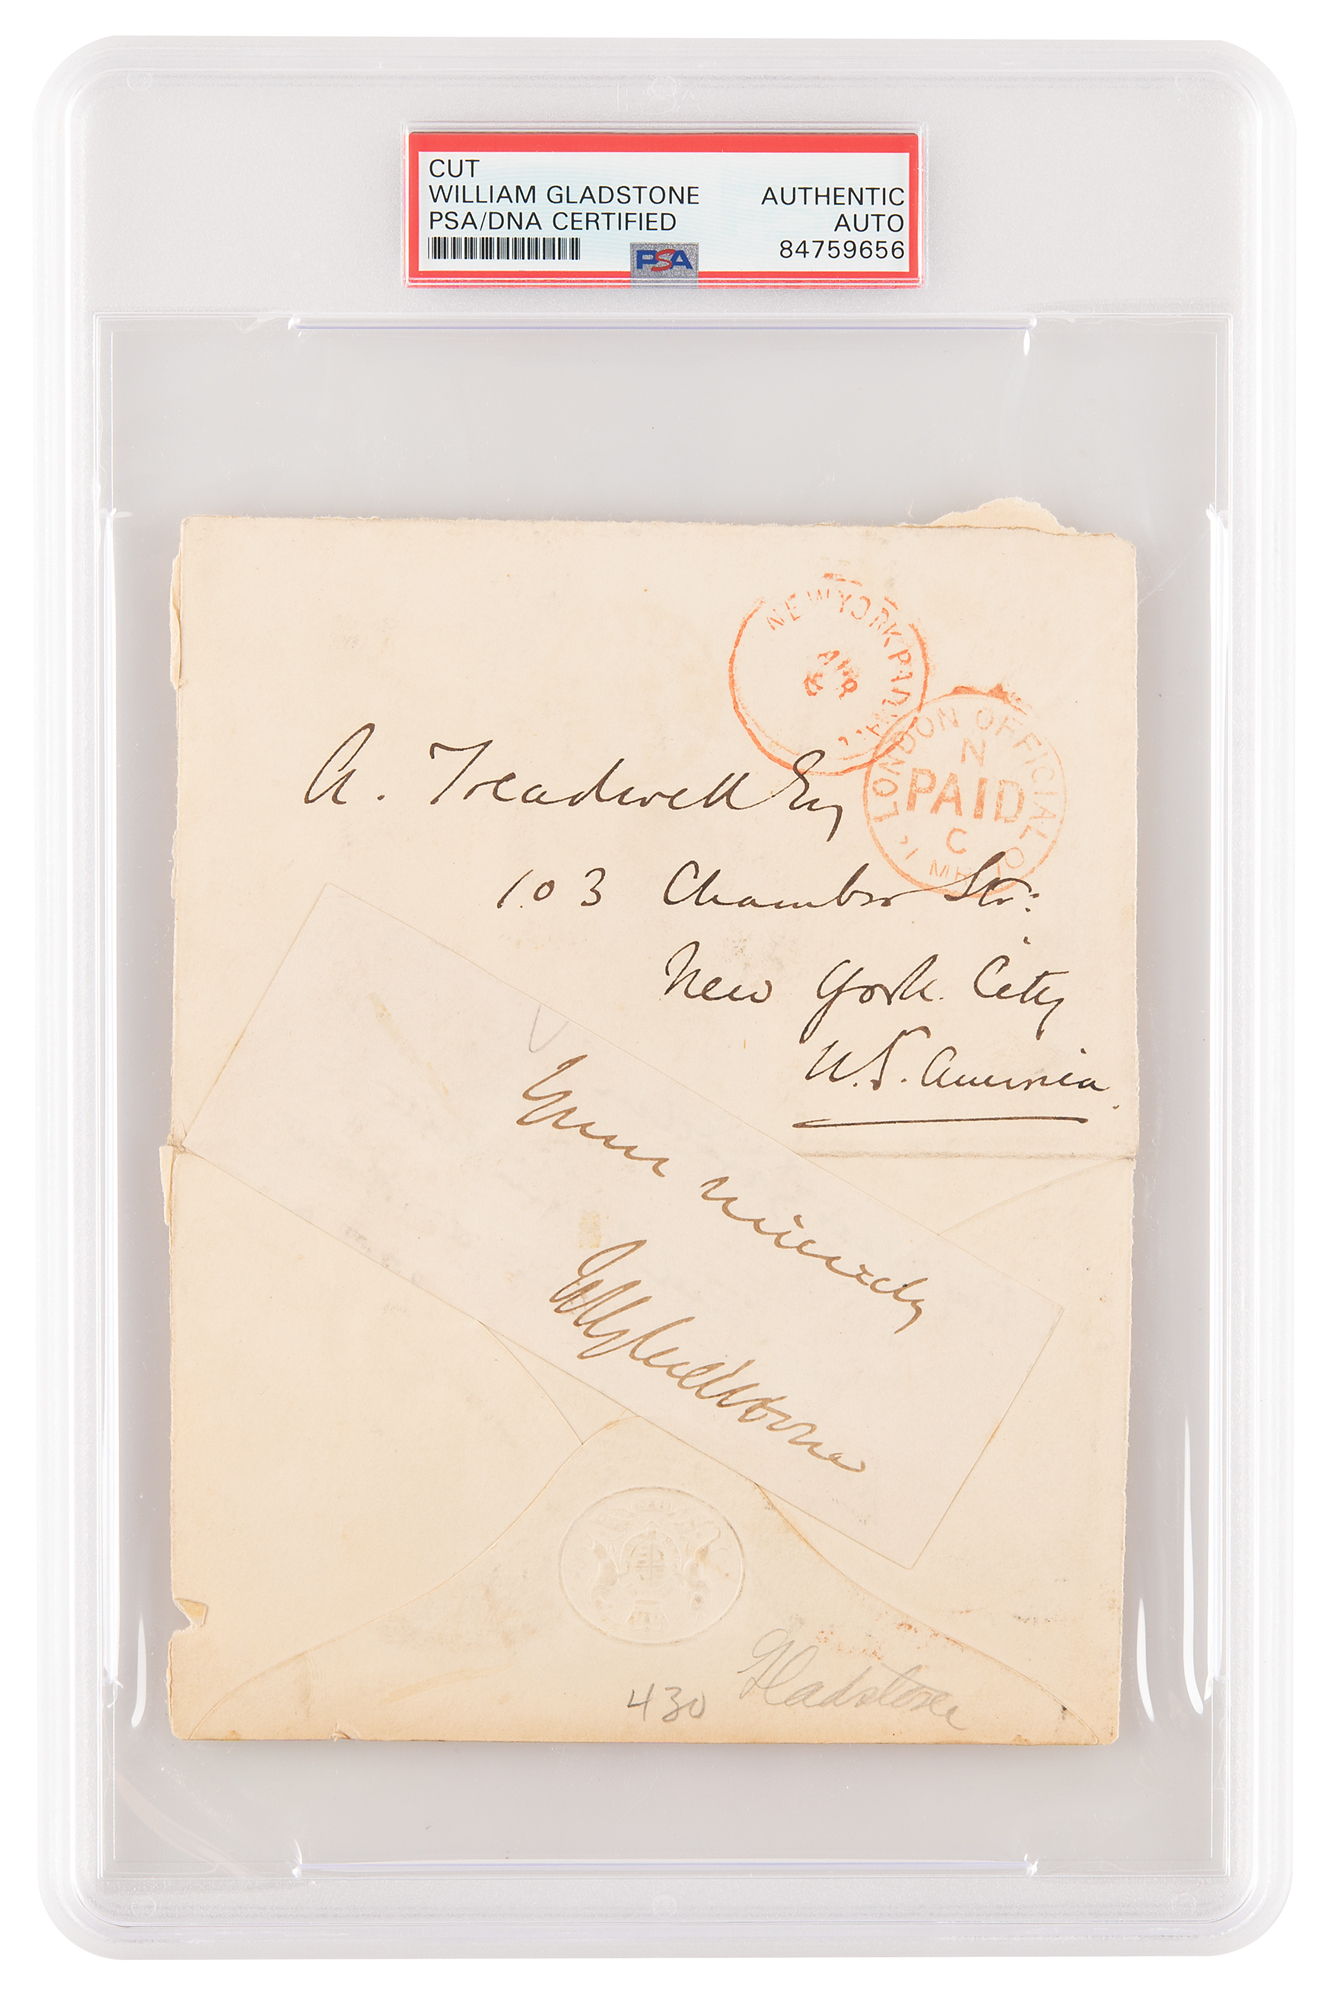 CUT
WILLIAM GLADSTONE
PSA/DNA CERTIFIED
AUTHENTIC
AUTO
84759656
PSA
NEW YORK PAID ALL
APR
LONDON OFFICIAL
N
PAID
C
A. Treadwell Esq
103 Chamber Str:
New York City
U.S. America.
Yours sincerely
WEGladstone
430 Gladstone